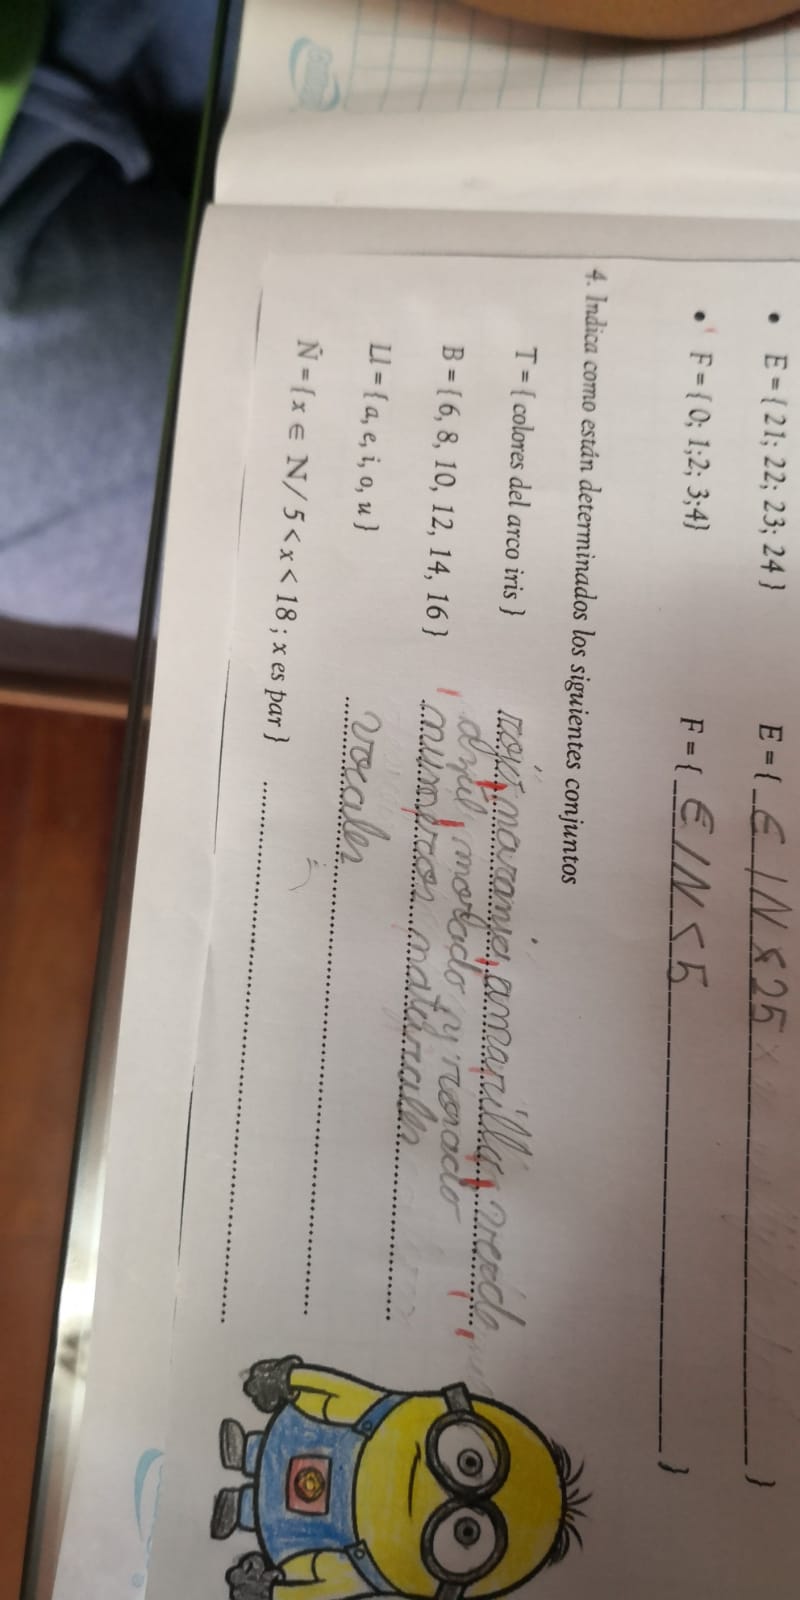 • E = { 21; 22; 23; 24 } E = { ∈ IN < 25 }
• F = { 0; 1;2; 3;4} F = { ∈ IN < 5 }
4. Indica como están determinados los siguientes conjuntos
T = { colores del arco iris } rojo, naranja, amarillo, verde,
azul, morado y rosado
B = { 6, 8, 10, 12, 14, 16 } numeros naturales
Ll = { a, e, i, o, u } vocales
Ñ = { x ∈ N / 5 < x < 18 ; x es par }